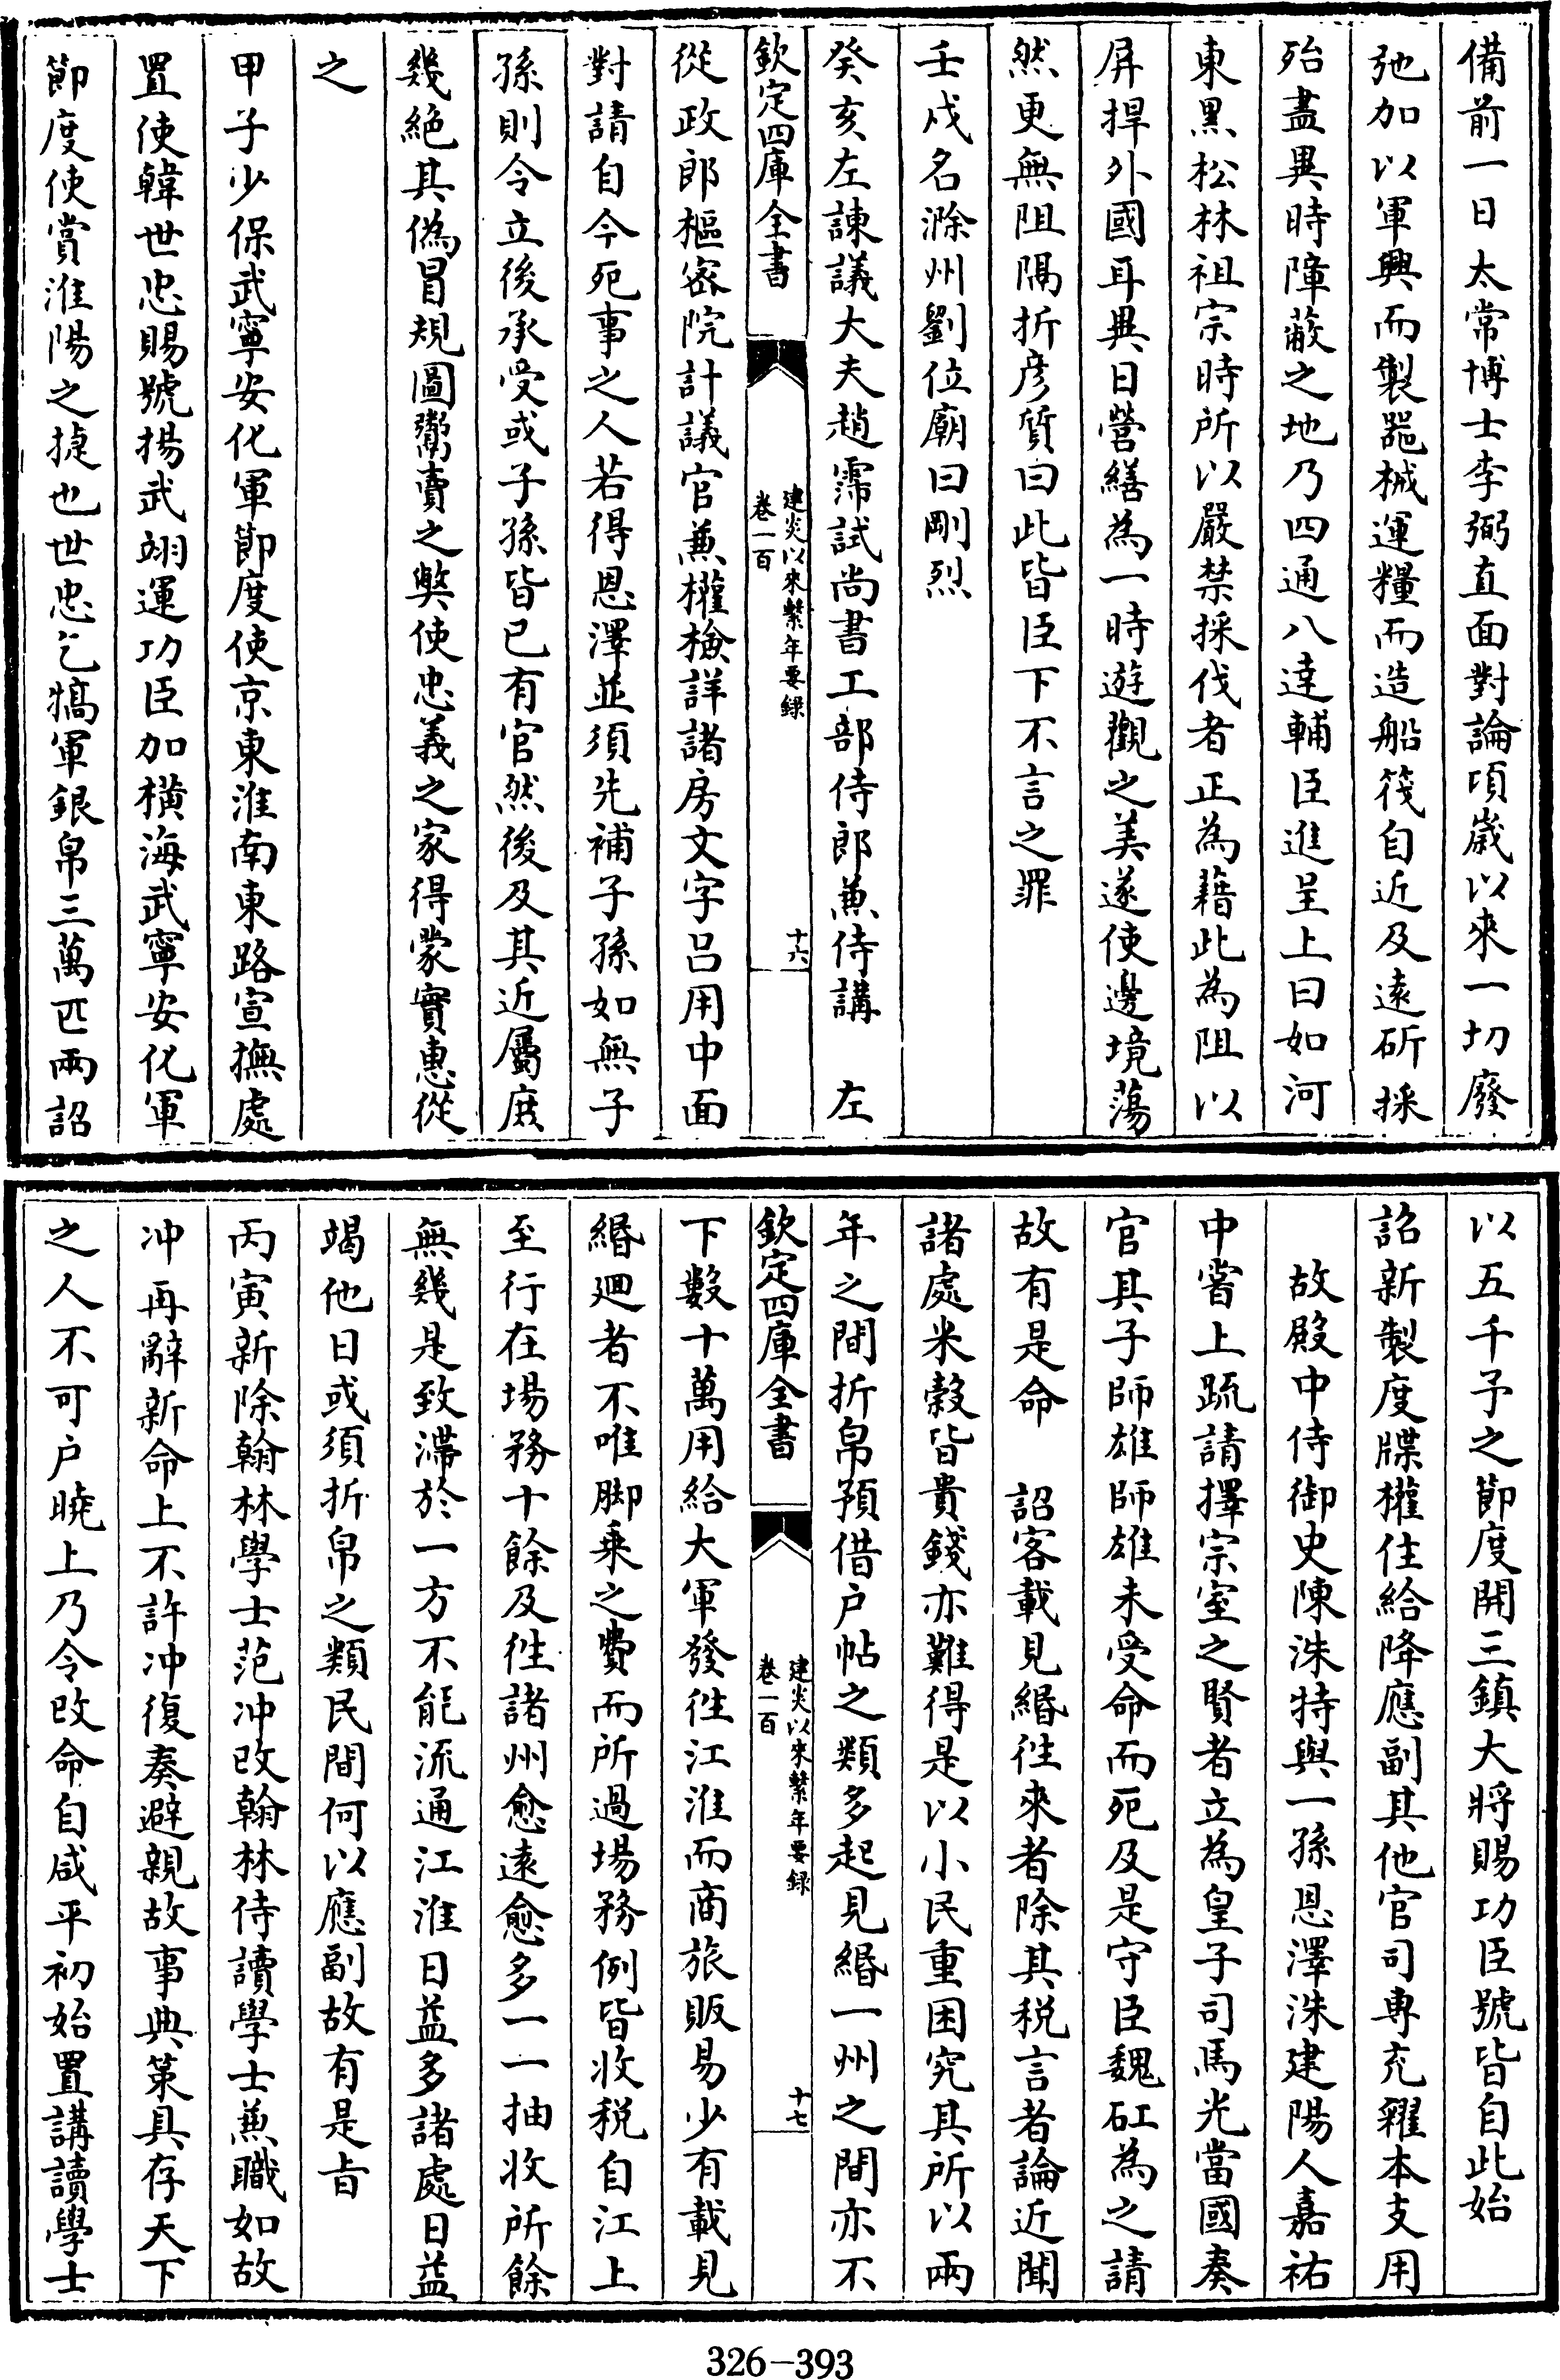 備前一日太常博士李弼直面對論頃歲以來一切廢
弛加以軍興而製器械運糧而造船筏自近及遠斫採
殆盡異時障蔽之地乃四通八達輔臣進呈上曰如河
東黑松林祖宗時所以嚴禁採伐者正為藉此為阻以
屏捍外國耳異日營繕為一時遊觀之美遂使邊境蕩
然更無阻隔折彦質曰此皆臣下不言之罪
壬戌名滁州劉位廟曰剛烈
癸亥左諫議大夫趙霈試尚書工部侍郎兼侍講　左
欽定四庫全書
建炎以來繫年要錄
卷一百
十六
從政郎樞密院計議官兼權檢詳諸房文字呂用中面
對請自今死事之人若得恩澤並須先補子孫如無子
孫則令立後承受或子孫皆已有官然後及其近屬庶
幾絕其偽冒規圖鬻賣之弊使忠義之家得蒙實惠從
之
甲子少保武寧安化軍節度使京東淮南東路宣撫處
置使韓世忠賜號揚武翊運功臣加橫海武寧安化軍
節度使賞淮陽之捷也世忠乞犒軍銀帛三萬匹兩詔
以五千予之節度開三鎮大將賜功臣號皆自此始
詔新製度牒權住給降應副其他官司專充糴本支用
故殿中侍御史陳洙特與一孫恩澤洙建陽人嘉祐
中嘗上疏請擇宗室之賢者立為皇子司馬光當國奏
官其子師雄師雄未受命而死及是守臣魏矼為之請
故有是命　詔客載見緡往來者除其稅言者論近聞
諸處米穀皆貴錢亦難得是以小民重困究其所以兩
年之間折帛預借户帖之類多起見緡一州之間亦不
欽定四庫全書
建炎以來繫年要錄
卷一百
十七
下數十萬用給大軍發往江淮而商旅販易少有載見
緡迴者不唯脚乘之費而所過場務例皆收稅自江上
至行在場務十餘及往諸州愈遠愈多一一抽收所餘
無幾是致滯於一方不能流通江淮日益多諸處日益
竭他日或須折帛之類民間何以應副故有是旨
丙寅新除翰林學士范冲改翰林侍讀學士兼職如故
冲再辭新命上不許冲復奏避親故事典策具存天下
之人不可户曉上乃令改命自咸平初始置講讀學士
326-393